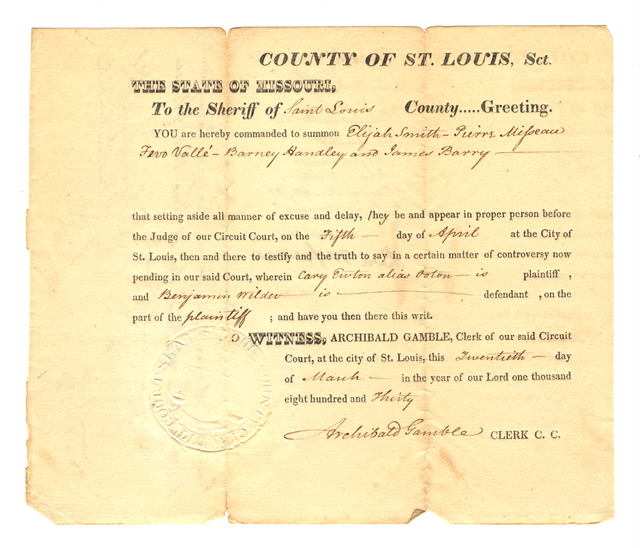 COUNTY OF ST. LOUIS, Sct.
THE STATE OF MISSOURI,
To the Sheriff of Saint Louis County.....Greeting.
YOU are hereby commanded to summon Elijah Smith – Pierre Misseau
Fevo Vallé – Barney Handley and James Barry –
that setting aside all manner of excuse and delay, /hey be and appear in proper person before
the Judge of our Circuit Court, on the Fifth – day of April at the City of
St. Louis, then and there to testify and the truth to say in a certain matter of controversy now
pending in our said Court, wherein Cary Ewton alias Ooton – is plaintiff ,
and Benjamin Wilder – is – defendant , on the
part of the plaintiff ; and have you then there this writ.
WITNESS, ARCHIBALD GAMBLE, Clerk of our said Circuit
Court, at the city of St. Louis, this Twentieth – day
of March – in the year of our Lord one thousand
eight hundred and Thirty
Archibald Gamble CLERK C. C.